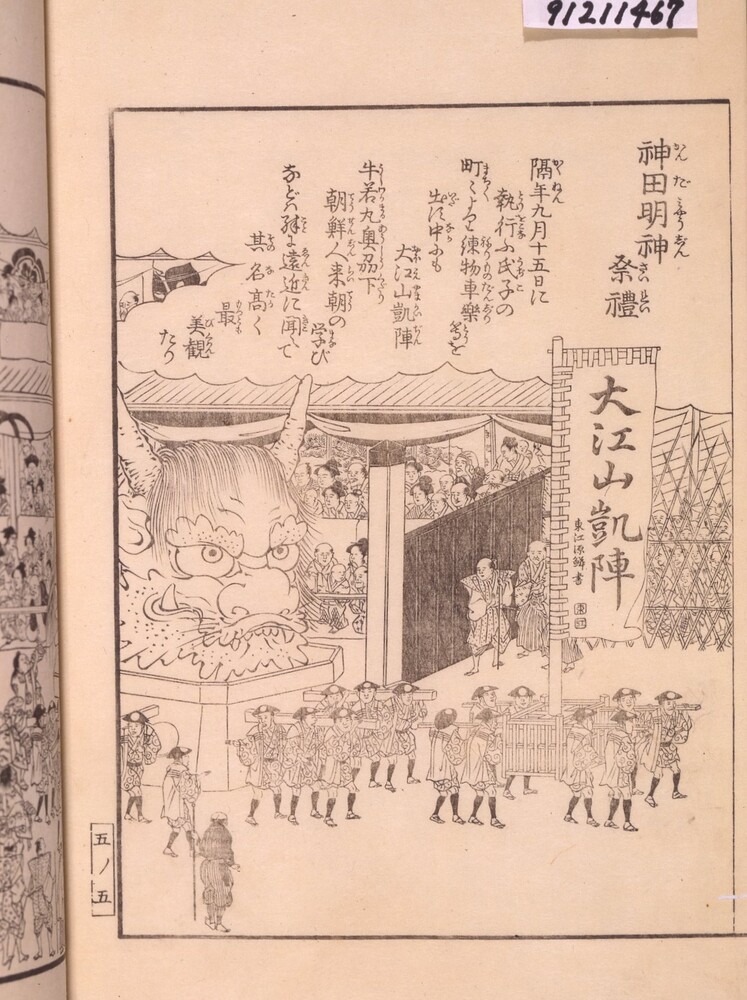 91211467
神田明神
祭禮
隔年九月十五日に
執行ふ氏子の
町〻より練物車樂等を
出す中にも
大江山凱陣
牛若丸奥刕下
朝鮮人来朝の
学び
などハ殊に遠近に聞えて
其名高く
最
美観
たり
大江山凱陣
東江源鱗書
五ノ五